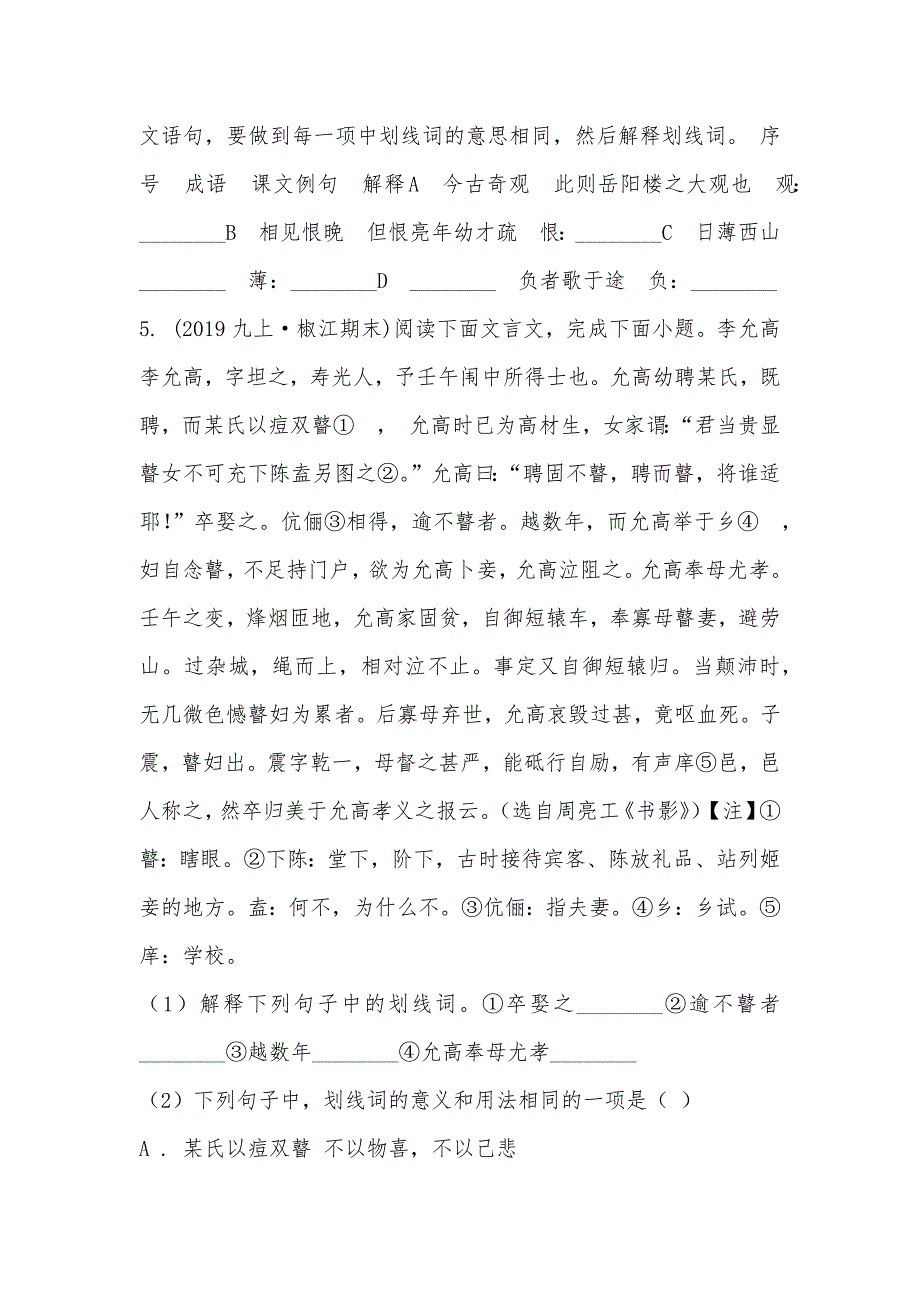 文语句，要做到每一项中划线词的意思相同，然后解释划线词。 序
号 成语 课文例句 解释A 今古奇观 此则岳阳楼之大观也 观：
________B 相见恨晚 但恨亮年幼才疏 恨：________C 日薄西山
________ 薄：________D ________ 负者歌于途 负：________
5. (2019九上·椒江期末)阅读下面文言文，完成下面小题。李允高
李允高，字坦之，寿光人，予壬午闱中所得士也。允高幼聘某氏，既
聘，而某氏以痘双瞽① ， 允高时已为高材生，女家谓：“君当贵显
瞽女不可充下陈盍另图之②。”允高曰：“聘固不瞽，聘而瞽，将谁适
耶！”卒娶之。伉俪③相得，逾不瞽者。越数年，而允高举于乡④ ，
妇自念瞽，不足持门户，欲为允高卜妾，允高泣阻之。允高奉母尤孝。
壬午之变，烽烟匝地，允高家固贫，自御短辕车，奉寡母瞽妻，避劳
山。过杂城，绳而上，相对泣不止。事定又自御短辕归。当颠沛时，
无几微色憾瞽妇为累者。后寡母弃世，允高哀毁过甚，竟呕血死。子
震，瞽妇出。震字乾一，母督之甚严，能砥行自励，有声庠⑤邑，邑
人称之，然卒归美于允高孝义之报云。（选自周亮工《书影》）【注】①
瞽：瞎眼。②下陈：堂下，阶下，古时接待宾客、陈放礼品、站列姬
妾的地方。盍：何不，为什么不。③伉俪：指夫妻。④乡：乡试。⑤
庠：学校。
（1）解释下列句子中的划线词。①卒娶之________②逾不瞽者
________③越数年________④允高奉母尤孝________
（2）下列句子中，划线词的意义和用法相同的一项是（ ）
A . 某氏以痘双瞽 不以物喜，不以己悲